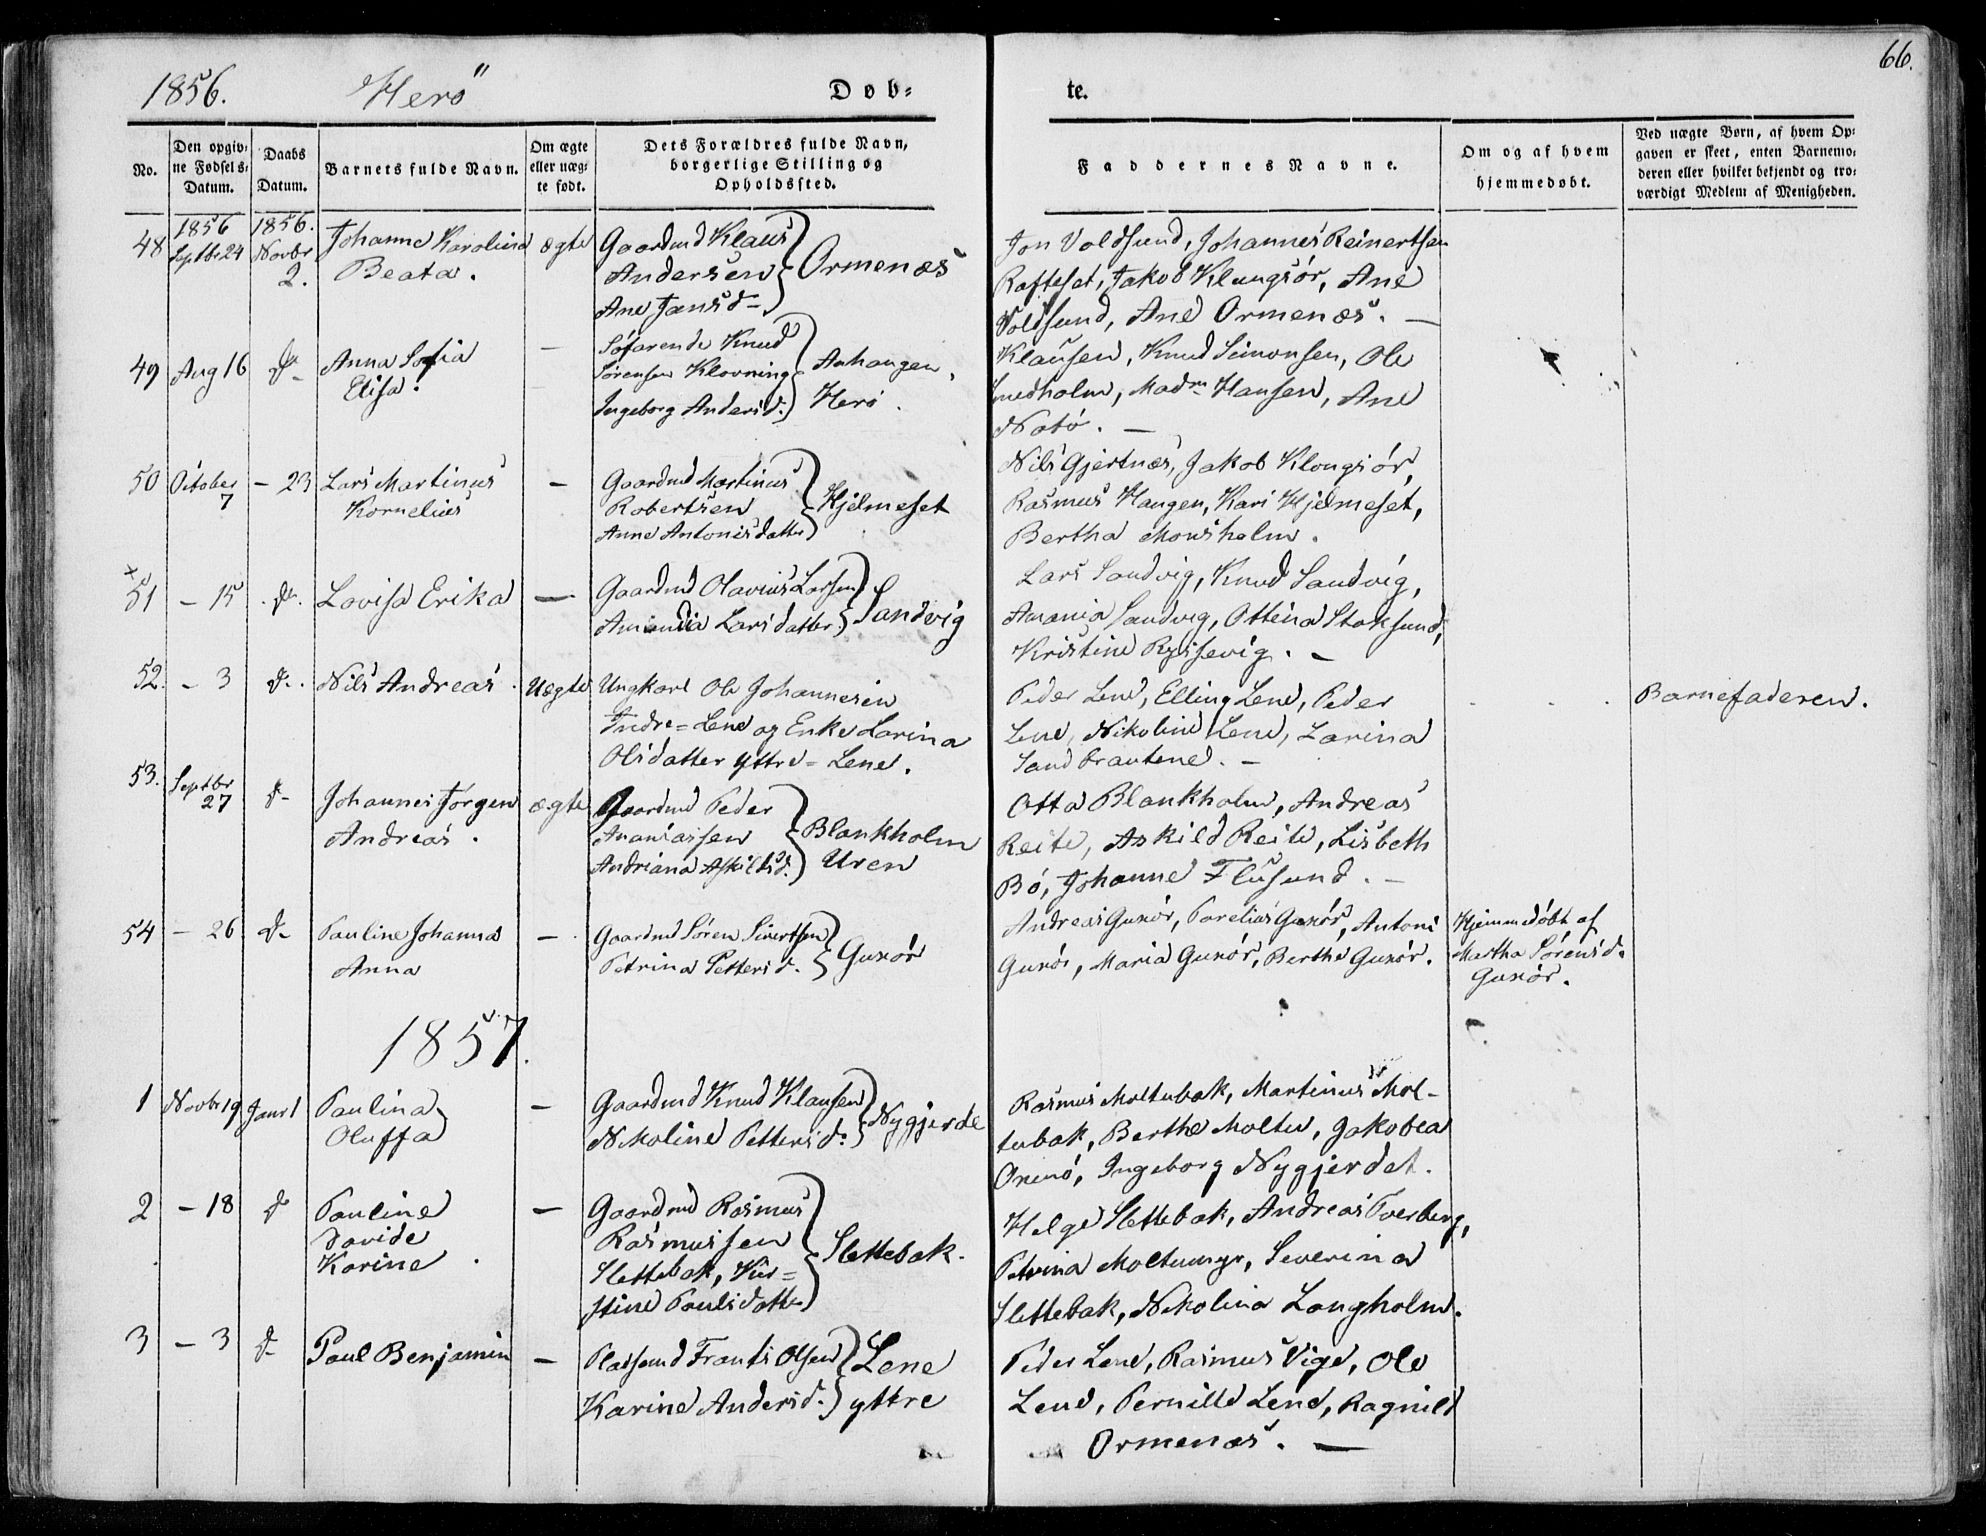 66.
1856. Herö Døb= te.
No.
Den opgiv=
ne Fødsels=
Datum.
Daabs
Datum.
Barnets fulde Navn.
Om ægte
eller uæg=
te født.
Dets Forældres fulde Navn,
borgerlige Stilling og
Opholdssted.
Faddernes Navne.
Om og af hvem
hjemmedøbt.
Ved uægte Børn, af hvem Op=
gaven er skeet, enten Barnemo=
deren eller hvilket bekjendt og tro=
værdigt Medlem af Menigheden.
48 1856 Septbr 24 1856. Novbr 2.
Johanne Karoline
Beata.
ægte
Gaardmd Klaus
Andersen
Ane Jansd-
Ormenæs
Jon Voldsund, Johannes Reinertsen
Rafteset, Jakob Klungsör, Ane
Voldsund, Ane Ormenæs. —
49 Aug 16 Do-
Anna Sofia
Elisa.
—
Söfarende Knud
Sörensen Klovning
Ingeborg Andersd.
Herö.
Klausen, Knud Simonsen, Ole
Smedholm, Madm Hansen, Ane
Notö. —
50 October 7 - 23
Lars Martinus
Kornelius
—
Gaardmd Martinus
Robertsen
Anne Antonisdatter
Hjelmeset
Nils Gjertnæs, Jakob Klongsör,
Rasmus Haugen, Kari Hjelmeset,
Bertha Mousholm.
x
51 - 15 Do.
Lovisa Erika
—
Gaardmd Olavius Larsen
Larsdatter
Sandvig
Lars Sandvig, Knud Sandvig,
Sandvig, Ottina Stoksund,
Kristine Røssevig. —
52. - 3 Do.
Nils Andreas.
Uægte
Ungkarl Ole Johannesen
Indre=Lene og Enke Larina
Olsdatter Yttre=Lene.
Peder Lene, Elling Lene, Peder
Lene, Nikoline Lene, Larina
Sandbrautene. —
Barnefaderen.
53. Septbr 27 Do-
Johannes Jörgen
Andreas.
ægte
Gaardmd Peder
Ananiassen
Andriana Askildsd.
Blankholm
Uren
Otta Blankholm, Andreas
Reite, Askild Reite, Lisbeth
Bö, Johanne Flusund. —
54 - 26 Do-
Pauline Johanna
Anna
—
Gaardmd Sören Sivertsen
Petrina Pettersd.
Gurör
Andreas Gurör, Parelius Gurör, Antoni
Gurör, Maria Gurör, Berthe Gurör.
Hjemmedöbt af
Martha Sörensd.
Gurör.
1857.
1 Novbr 19 Janr 1
Paulina
Oluffa
—
Gaardmd Knud Klausen
Nikoline Pettersd:
Nygjerde
Rasmus Moltubak, Martinus Mol-
tubak, Berthe Moltu, Jakobea
Ingeborg Nygjerdet.
2 - 18 Do
Pauline
Davide
Karine.
—
Gaardmd Rasmus
Rasmussen
Slettebak, Kir=
stine Paulsdatter
Slettebak.
Helge Slettebak, Andreas Tverberg,
Petrina Moltumyr, Severina
Slettebak, Nikolina Langholm.
3 - 3 Do-
Paul Benjamin
—
Pladsmd Frants Olsen
Karine Andersd.
Lene
yttre
Peder Lene, Rasmus Vige, Ole
Lene, Pernille Lene, Ragnild
Ormenæs. —